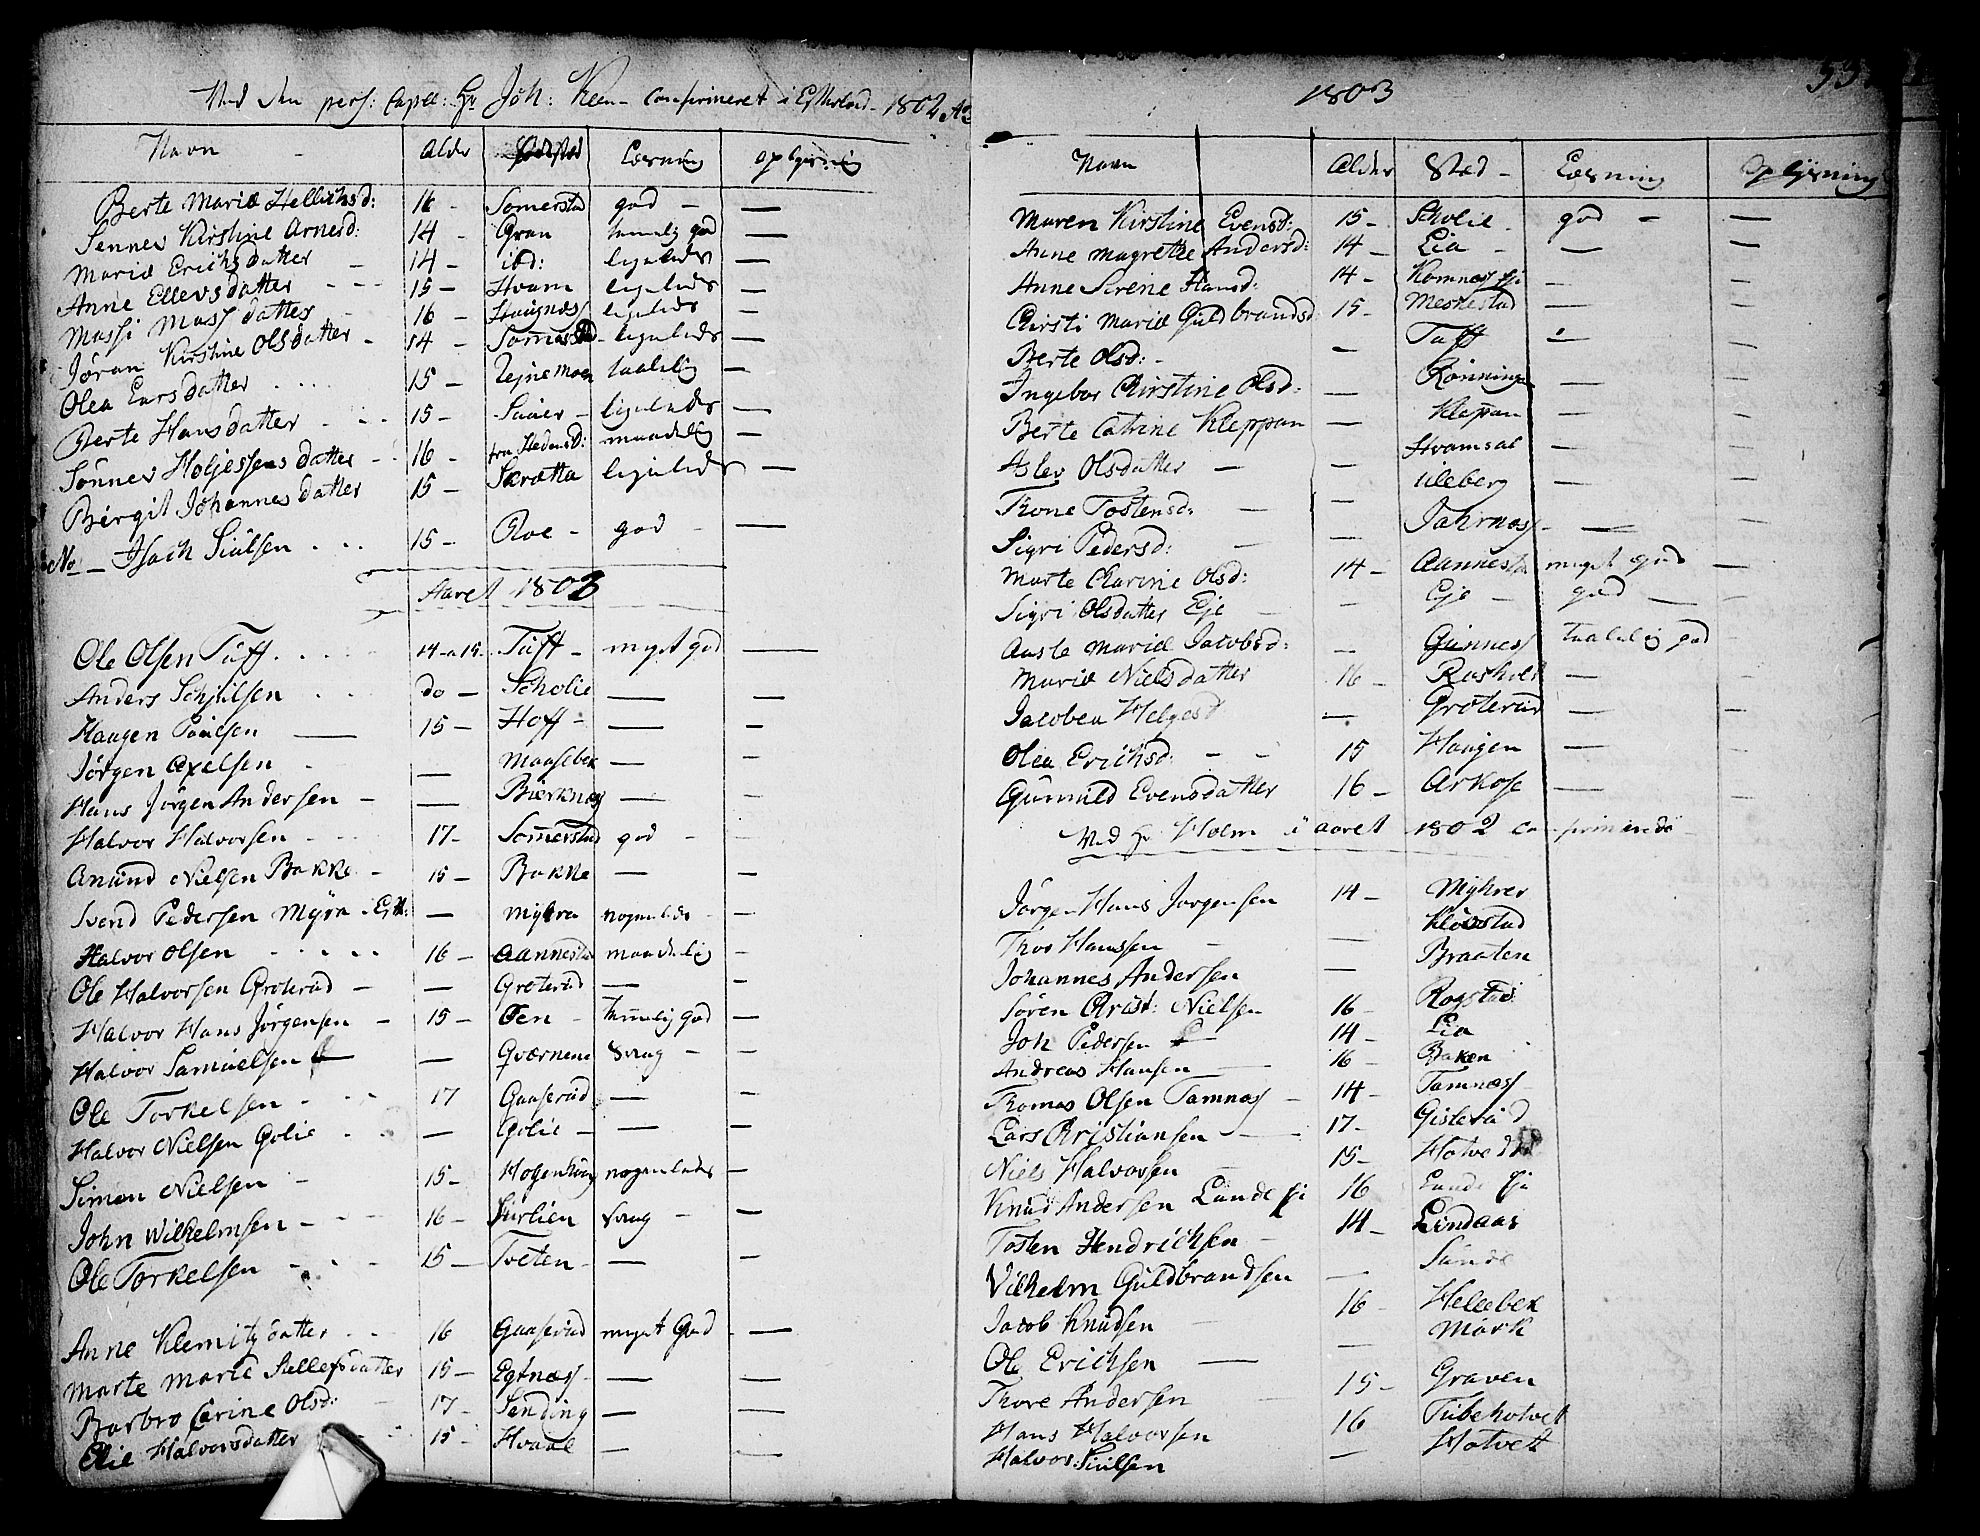 Ved den pers: Capell: Hr Joh: Keen confirmeret i Efteraaret 1802
Navn Alder Læsning oplysning
Berte Mariæ Hellichsd: 16 Somerstad god —
Sennev Kirstine Arnesd: 14 Gran temelig god —
Mariæ Erichsdatter 14 ibd: ligeledes —
Anne Ellevsdatter 15 Hvam ligeledes —
Massi Massdatter 16 Haugnæss ligeledes —
Jöran Kirstine Olsdatter 14 ligeledes —
Olea Larsdatter 15 Tejne Moen taalelig —
Berte Hansdatter 15 ligeledes —
Sönnev Holjessensdatter 16 maadelig —
Birgit Johannesdatter 15 Skrætta ligeledes —
No — Isach Siulsen 15 Roe god —
Aaret 1803
Ole Olsen Tuff 14-a15 Tuff meget god —
Anders Schjulsen do Scholie — —
Haagen Paulsen 15 Hoff — —
Jörgen Axelsen — Maasebek — —
Hans Jörgen Andersen — Bierknæs — —
Halvor Halvorsen 17 Somerstad god —
Anund Nielsen Bakke 15 Bakke — —
Svend Pedersen Myra — Myhra nogenledes —
Halvor Olsen 16 Aannestad maadelig —
Ole Halvorsen Groterud — Groterud — —
Halvor Hans Jörgensen 15 Öen temelig god —
Halvor Samuelsen — Qværnene Svag —
Ole Torkelsen 17 Gaaserud — —
Halvor Nielsen Golie — Golie — —
Simon Nielsen 15 nogenledes —
John Wilhelmsen 16 Surlien Svag —
Ole Torkelsen 15 Tveten —
Anne Klemitzdatter 16 Gaaserud meget God —
Marte Marie Stellefsdatter 15 Egtnæss — —
Barbro Carine Olsd: 17 Sanding — —
Elie Halvorsdatter 15 Hvaal — —
1803
Navn Alder Stæd Læsning Oplysning
Maren Kirstine Evensd: 15 Scholie god —
Anne Magrethe Andersd: 14 Lia — —
Anne Sirene Hansd: 14 Komnæss —
Christi Mariæ Guldbrandsd 15 Meenstad —
Berte Olsd: — Tuff —
Ingebor Christine Olsd: — Rönningen —
Berte Catrine Kleppan — Kleppan —
Aslev Olsdatter — Hvamsal —
Thone Tostensd: — Uleberg —
Sigri Pedersd: — Jahrnæss —
Marte Charine Olsd: 14 Aannestad meget god —
Sigri Olsdatter Eje — Eje god —
Aaste Mariæ Jacobsd: — Gunness taalelig god
Mariæ Nielsdatter 16 Rasholt —
Jacobea Helgesd — Groterud —
Olea Erichsd: 15 Haugen —
Gunnild Evensdatter 16 Arkose —
Ved Hr Holm i aaret 1802 confirmerede
Jörgen Hans Jörgensen 14 Myhrer
Thor Hanssen — Klöostad
Johannes Andersen — Braaten
Sören Christ: Nielsen 16 Rogstad
Joh Pedersen 14 Lia
Andreas Hansen 16 Baken
Thomas Olsen Tamnæss 14 Tamnæss
Lars Christiansen 17 Gisterud
Niels Halvorsen 15
Knud Andersen Lunde Eje 16 Lunde Eje
Tosten Hendrichsen 14 Lindaas
Vilhelm Guldbrandsen — Sunde
Jacob Knudsen 16 Hellebek
Ole Erichsen — Mörk
Thore Andersen 15 Graven
Hans Halvorsen 16 Tubeholvet
Halvor Siulsen — Hotvett